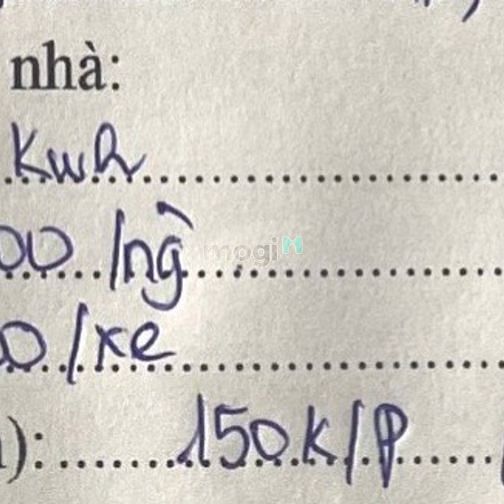 nhà:
Kwh
00 /ng̀
mogi
0 /xe
): 150K/P